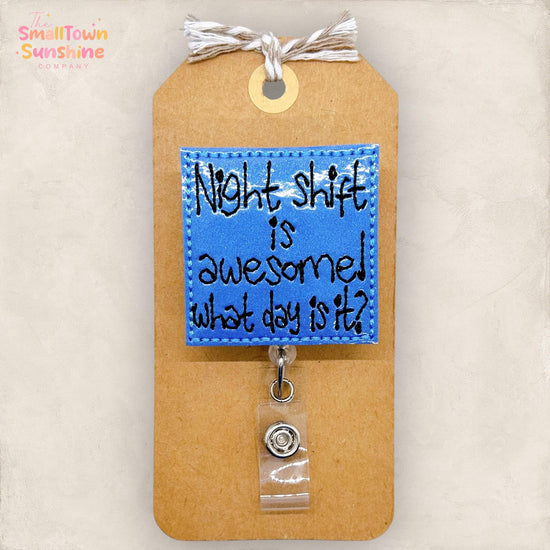 The
SmallTown
Sunshine
COMPANY
Night shift
is
awesome!
what day is it?